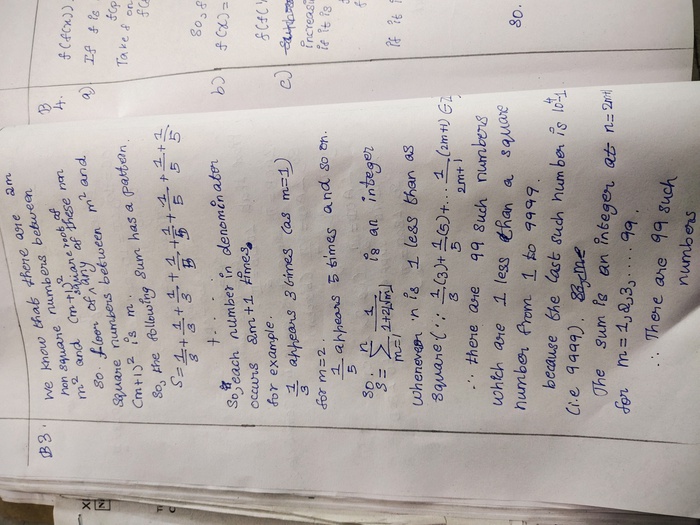 B3.
We know that there are 2m
non square numbers between
m² and (m+1)²
square root of
so. floor of any of these non
square numbers between m² and
(m+1)² is m.
So, the following sum has a pattern.
S = 1/3 + 1/3 + 1/3 + 1/5 + 1/5 + 1/5 + 1/5 + 1/5
+ . . . .
So, each number in denominator
occurs 2m+1 times.
for example.
1/3 appears 3 times (as m=1)
for m=2.
1/5 appears 5 times and so on.
so. S = ∑ₘ₌₁ⁿ 1/(1+2⌊√m⌋) is an integer
Whenever n is 1 less than as
square (∵ 1/3(3) + 1/5(5) + ... 1/(2m+1) (2m+1) ∈ Z
∴ there are 99 such numbers
which are 1 less than a square
number from 1 to 9999.
because the last such number is 10⁴-1
(i.e 9999).
The sum is an integer at n = 2m+1
for m = 1, 2, 3, .... 99.
∴ There are 99 such
numbers
B
4.
f(f(x))
a) If f is
Take f on
so, f
b) f(x) =
f(f(
c)
increasi
if it is
if it i
so.